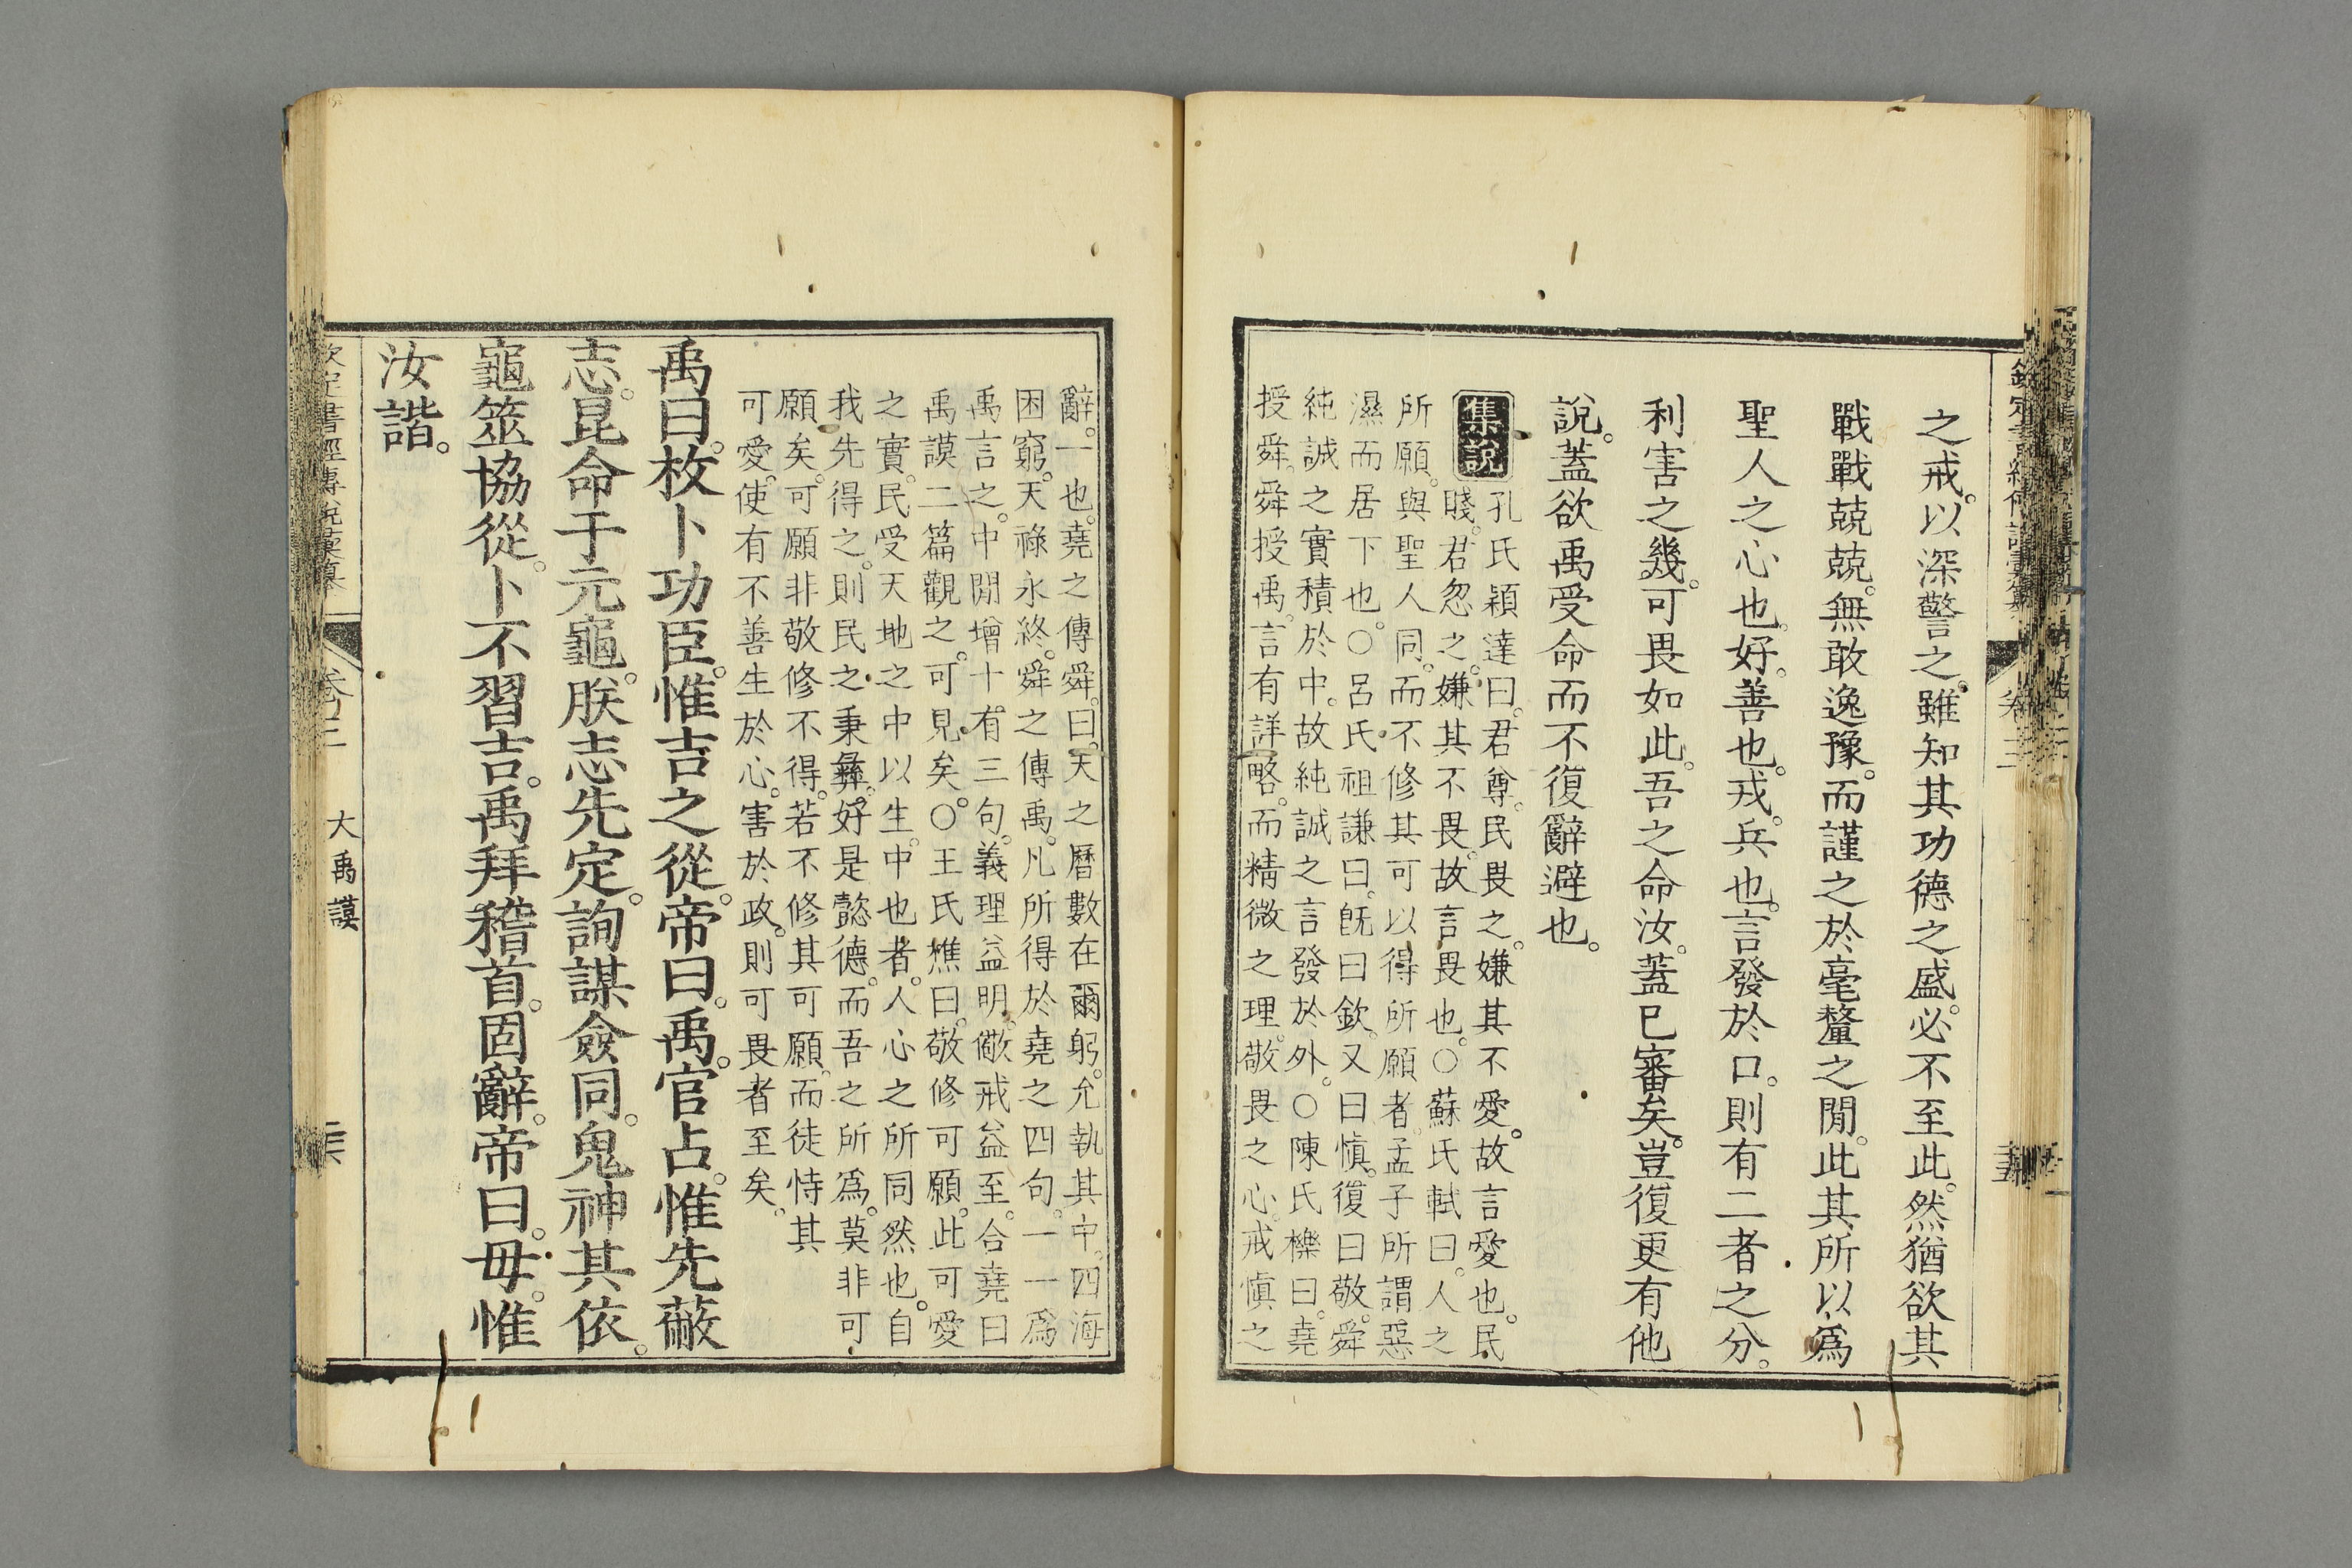 之戒。以深警之。雖知其功德之盛。必不至此。然猶欲其
戰戰兢兢。無敢逸豫。而謹之於毫釐之閒。此其所以爲
聖人之心也。好。善也。戎。兵也。言發於口。則有二者之分。
利害之幾。可畏如此。吾之命汝。蓋已審矣。豈復更有他
說。蓋欲禹受命而不復辭避也。
集說
孔氏穎達曰。君尊。民畏之。嫌其不愛。故言愛也。民
賤。君忽之。嫌其不畏。故言畏也。○蘇氏軾曰。人之
所願。與聖人同。而不修其可以得所願者。孟子所謂惡
濕而居下也。○呂氏祖謙曰。旣曰欽。又曰愼。復曰敬。舜
純誠之實積於中。故純誠之言發於外。○陳氏櫟曰。堯
授舜。舜授禹。言有詳略。而精微之理。敬畏之心。戒愼之
辭。一也。堯之傳舜。曰。天之曆數在爾躬。允執其中。四海
困窮。天祿永終。舜之傳禹。凡所得於堯之四句。一一爲
禹言之。中閒增十有三句。義理益明。儆戒益至。合堯曰
禹謨二篇觀之。可見矣。○王氏樵曰。敬修可願。此可愛
之實。民受天地之中以生。中也者。人心之所同然也。自
我先得之。則民之秉彝。好是懿德。而吾之所爲。莫非可
願矣。可願非敬修不得。若不修其可願。而徒恃其
可愛。使有不善生於心。害於政。則可畏者至矣。
禹曰。枚卜功臣。惟吉之從。帝曰。禹。官占。惟先蔽
志。昆命于元龜。朕志先定。詢謀僉同。鬼神其依。
龜筮協從。卜不習吉。禹拜稽首。固辭。帝曰。毋。惟
汝諧。
欽定書經傳說彙纂 卷三 大禹謨